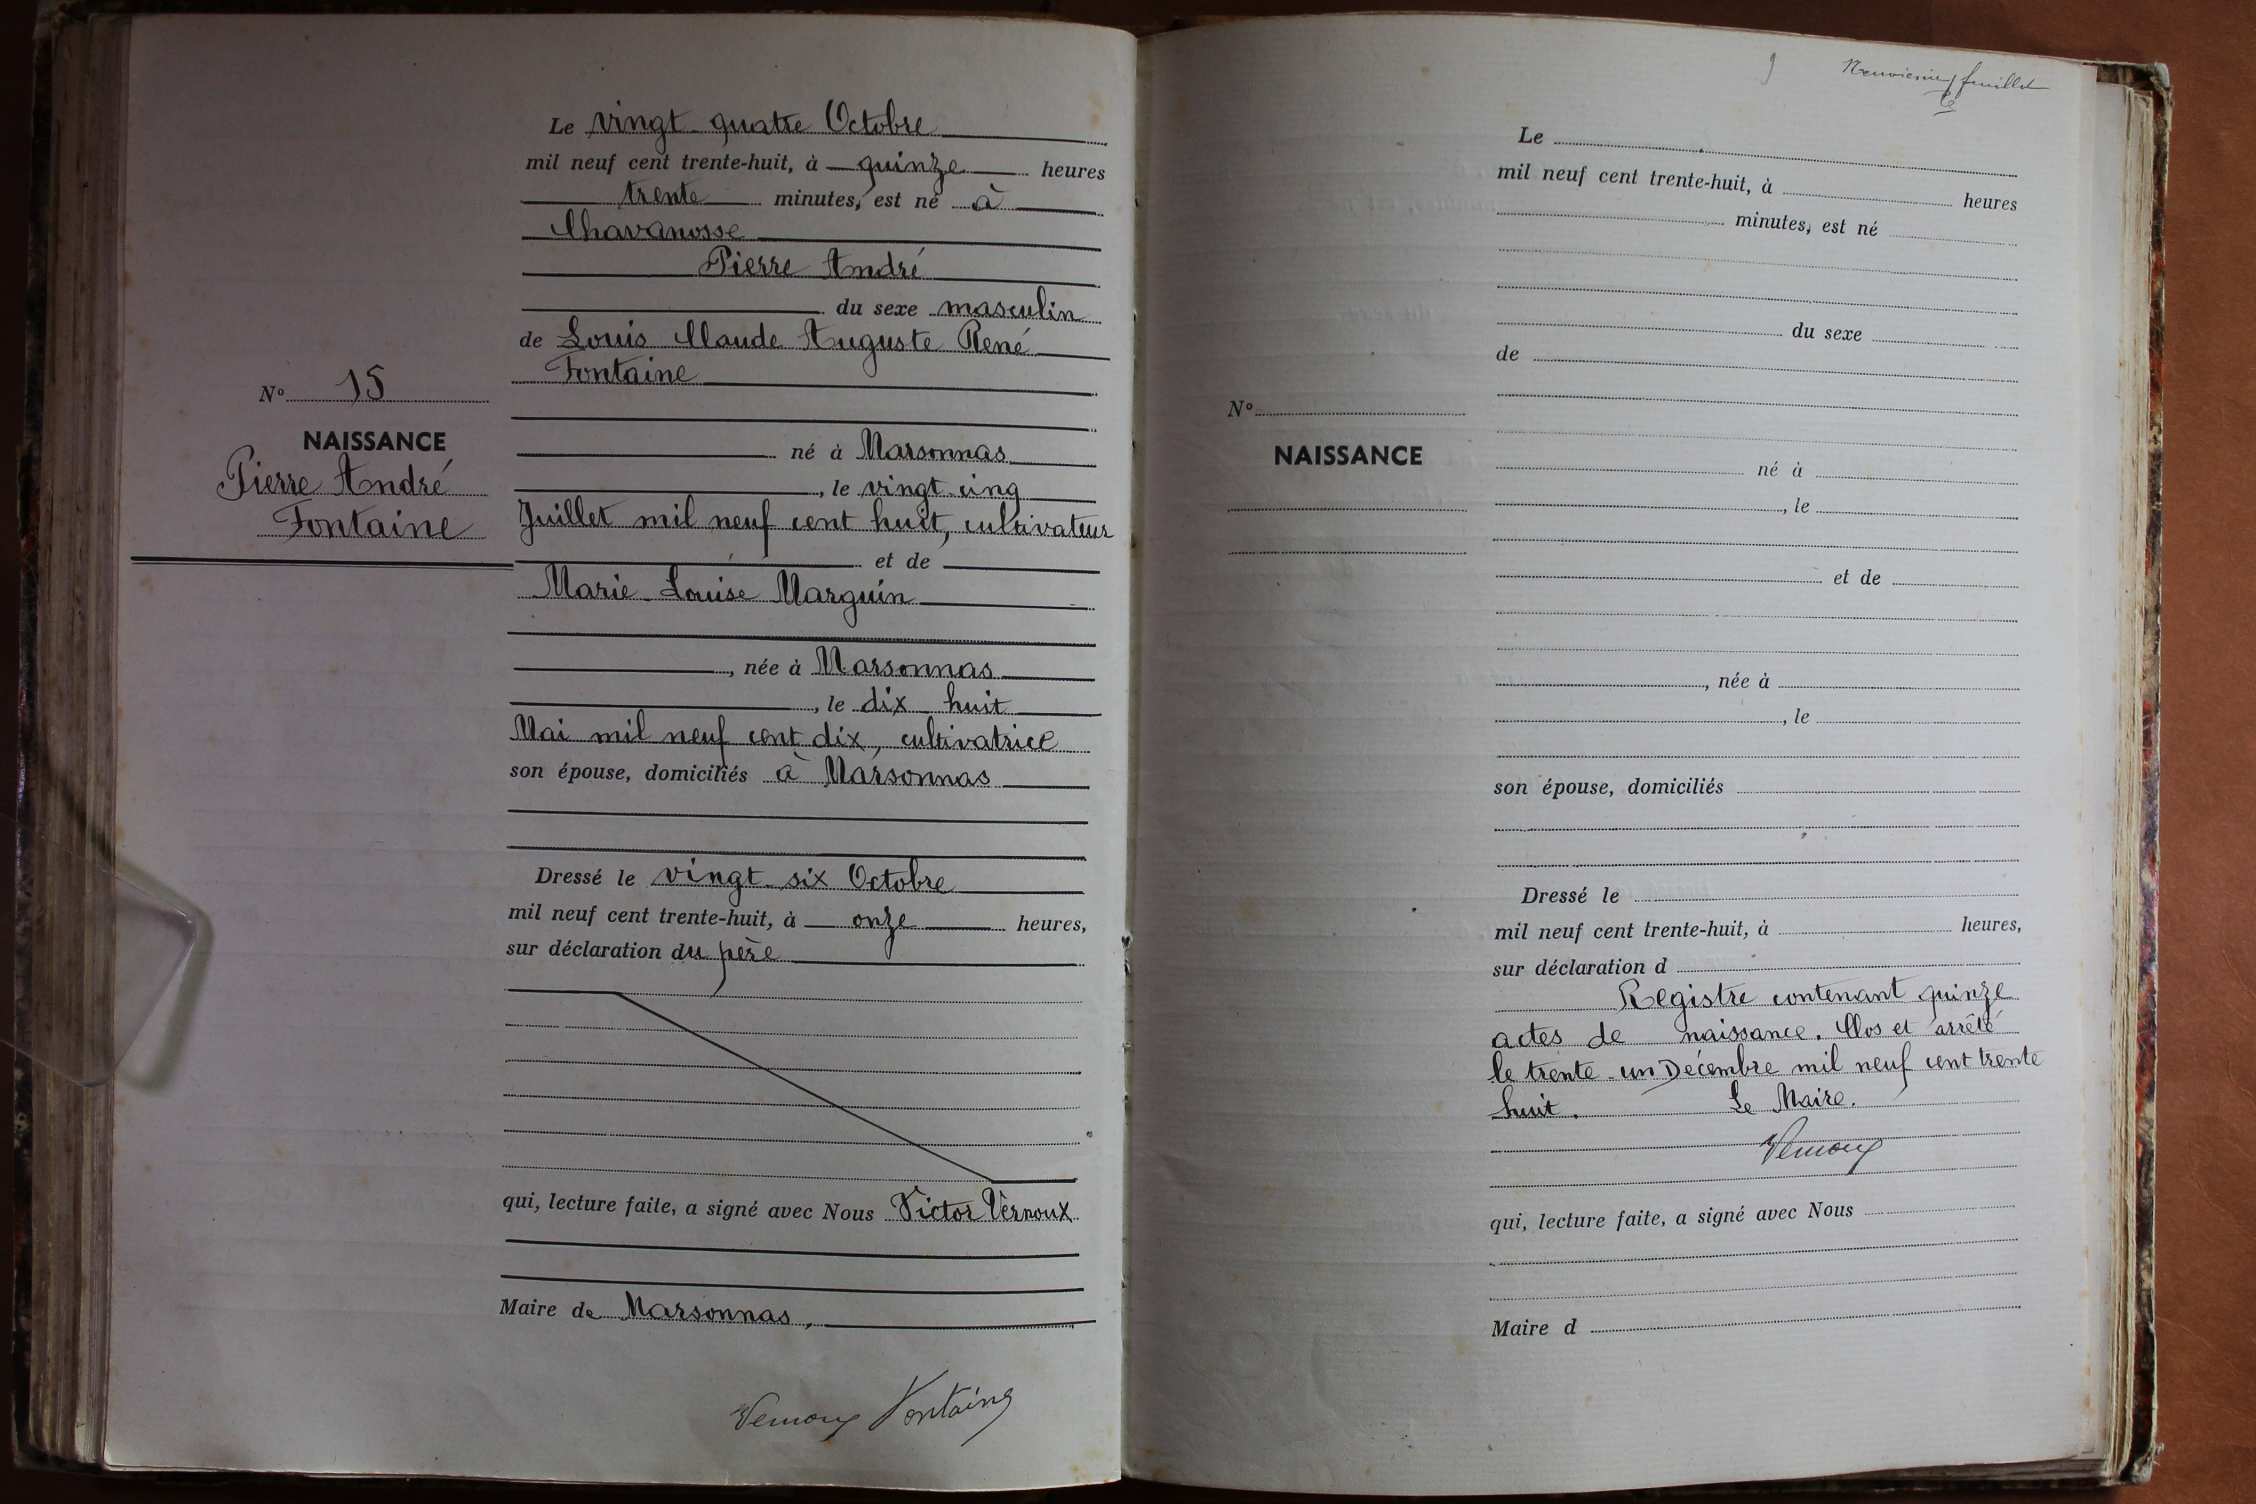 Le vingt quatre Octobre
mil neuf cent trente-huit, à quinze heures
trente minutes, est né à
Chavanosse
Pierre André
du sexe masculin
de Louis Claude Auguste René
Fontaine
né à Marsonnas
, le vingt cinq
Juillet mil neuf cent huit, cultivateur
et de
Marie Louise Marguin
, née à Marsonnas
, le dix huit
Mai mil neuf cent dix, cultivatrice
son épouse, domiciliés à Marsonnas
Dressé le vingt six Octobre
mil neuf cent trente-huit, à onze heures,
sur déclaration du père
qui, lecture faite, a signé avec Nous Victor Vernoux
Maire de Marsonnas,
Vernoux Fontaine
No 15
NAISSANCE
Pierre André
Fontaine
9 Neuvième feuillet
Le
mil neuf cent trente-huit, à heures
minutes, est né
du sexe
de
né à
, le
et de
, née à
, le
son épouse, domiciliés
Dressé le
mil neuf cent trente-huit, à heures,
sur déclaration d
Registre contenant quinze
actes de naissance. Clos et arrêté
le trente un Décembre mil neuf cent trente
huit. Le Maire.
Vernoux
qui, lecture faite, a signé avec Nous
Maire d
No
NAISSANCE